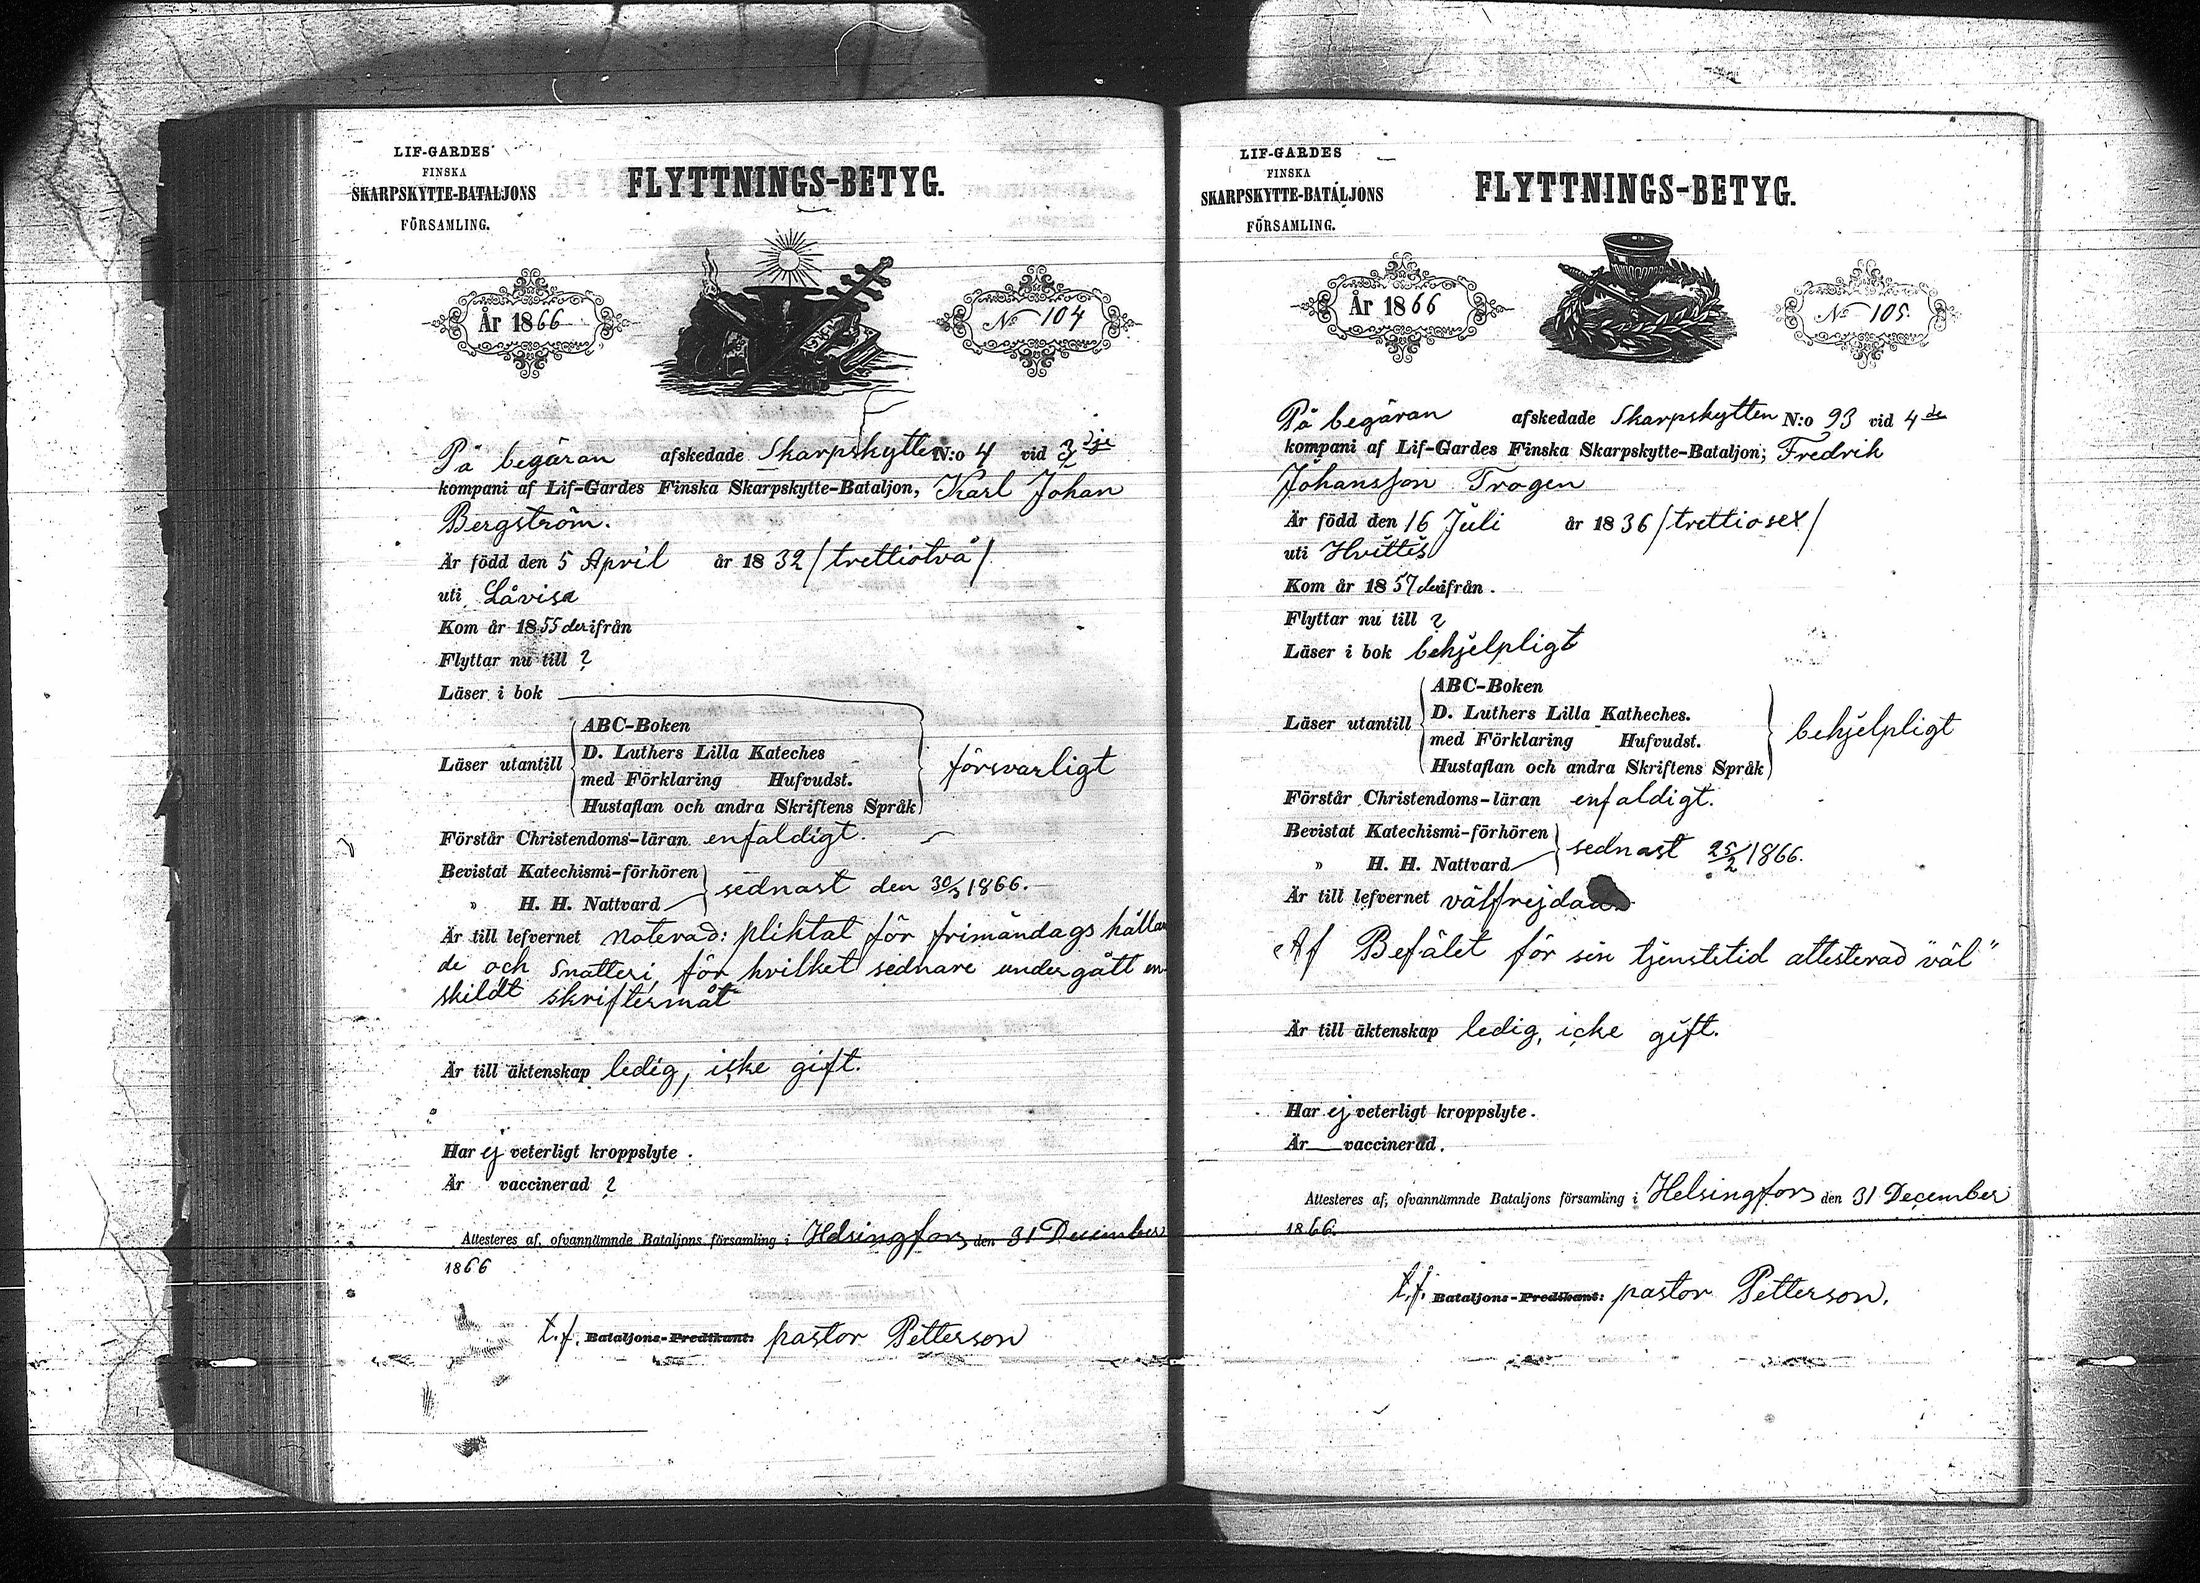 LIF-GARDES
FINSKA
SKARPSKYTTE-BATALJONS
FÖRSAMLING.
FLYTTNINGS-BETYG.
År 1866
No 104
På begäran afskedade Skarpskytten N:o 4 vid 3dje
kompani af Lif-Gardes Finska Skarpskytte-Bataljon, Karl Johan
Bergström.
Är född den 5 April år 1832 / trettiotvå /
uti Låvisa
Kom år 1855 derifrån
Flyttar nu till ?
Läser i bok
Läser utantill
ABC-Boken
D. Luthers Lilla Kateches
med Förklaring Hufvudst.
Hustaflan och andra Skriftens Språk
försvarligt
Förstår Christendoms-läran enfaldigt.
Bevistat Katechismi-förhören
" H. H. Nattvard
sednast den 30/3 1866.
Är till lefvernet noterad: pliktat för frimåndags hållan
de och snatteri, för hvilket sednare undergått en
skildt skriftermåt
Är till äktenskap ledig, icke gift.
Har ej veterligt kroppslyte.
Är vaccinerad ?
Attesteres af, ofvannämnde Bataljons församling i Helsingfors den 31 December
1866
t.f. Bataljons-Predikant: pastor Petterson
LIF-GARDES
FINSKA
SKARPSKYTTE-BATALJONS
FÖRSAMLING.
FLYTTNINGS-BETYG.
År 1866
No 105.
På begäran afskedade Skarpskytten N:o 93 vid 4de
kompani af Lif-Gardes Finska Skarpskytte-Bataljon; Fredrik
Johansson Trogen
Är född den 16 Juli år 1836 / trettiosex /
uti Hvittis
Kom år 1857 derifrån.
Flyttar nu till ?
Läser i bok behjelpligt
Läser utantill
ABC-Boken
D. Luthers Lilla Katheches.
med Förklaring Hufvudst.
Hustaflan och andra Skriftens Språk
behjelpligt
Förstår Christendoms-läran enfaldigt.
Bevistat Katechismi-förhören
" H. H. Nattvard
sednast 25/2 1866.
Är till lefvernet välfrejdad.
Af Befälet för sin tjenstetid attesterad "väl"
Är till äktenskap ledig, icke gift.
Har ej veterligt kroppslyte.
Är vaccinerad.
Attesteres af, ofvannämnde Bataljons församling i Helsingfors den 31 December
1866.
t.f. Bataljons-Predikant: pastor Petterson.